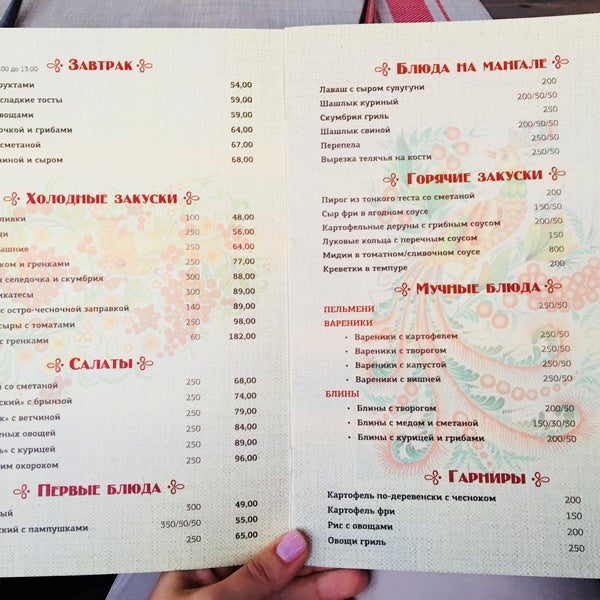 ЗАВТРАК
:00 до 13.00
54,00
сладкие тосты 59,00
59,00
и грибами 64,00
сметаной 67,00
и сыром 68,00
ХОЛОДНЫЕ ЗАКУСКИ
100 48,00
250 56,00
250 64,00
и гренками 250 77,00
селедочка и скумбрия 300 88,00
300 89,00
с остро-чесночной заправкой 140 89,00
сыры с томатами 250 98,00
с гренками 60 182,00
САЛАТЫ
со сметаной 250 68,00
с брынзой 250 74,00
с ветчиной 250 79,00
овощей 250 84,00
с курицей 250 89,00
окороком 250 96,00
ПЕРВЫЕ БЛЮДА
300 49,00
с пампушками 350/50/50 55,00
250 65,00
БЛЮДА НА МАНГАЛЕ
Лаваш с сыром сулугуни 200
Шашлык куриный 200/50/50
Скумбрия гриль 250
Шашлык свиной 200/50/50
Перепела 250/50
Вырезка телячья на кости 250/50
ГОРЯЧИЕ ЗАКУСКИ
Пирог из тонкого теста со сметаной 200
Сыр фри в ягодном соусе 150/50
Картофельные деруны с грибным соусом 200/50
Луковые кольца с перечным соусом 150
Мидии в томатном/сливочном соусе 800
Креветки в темпуре 200
МУЧНЫЕ БЛЮДА
ПЕЛЬМЕНИ 250/50
ВАРЕНИКИ
• Вареники с картофелем 250/50
• Вареники с творогом 250/50
• Вареники с капустой 250/50
• Вареники с вишней 250/50
БЛИНЫ
• Блины с творогом 200/50
• Блины с медом и сметаной 150/30/30
• Блины с курицей и грибами 200/50
ГАРНИРЫ
Картофель по-деревенски с чесноком 200
Картофель фри 150
Рис с овощами 200
Овощи гриль 250